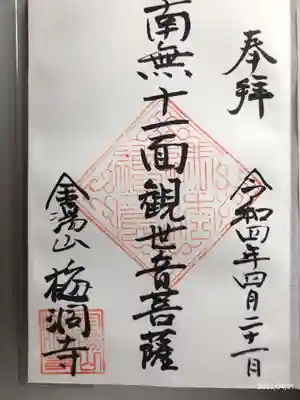 奉拝
令和四年四月二十一日
南無十一面観世音菩薩
山 梅洞寺
2022/04/21